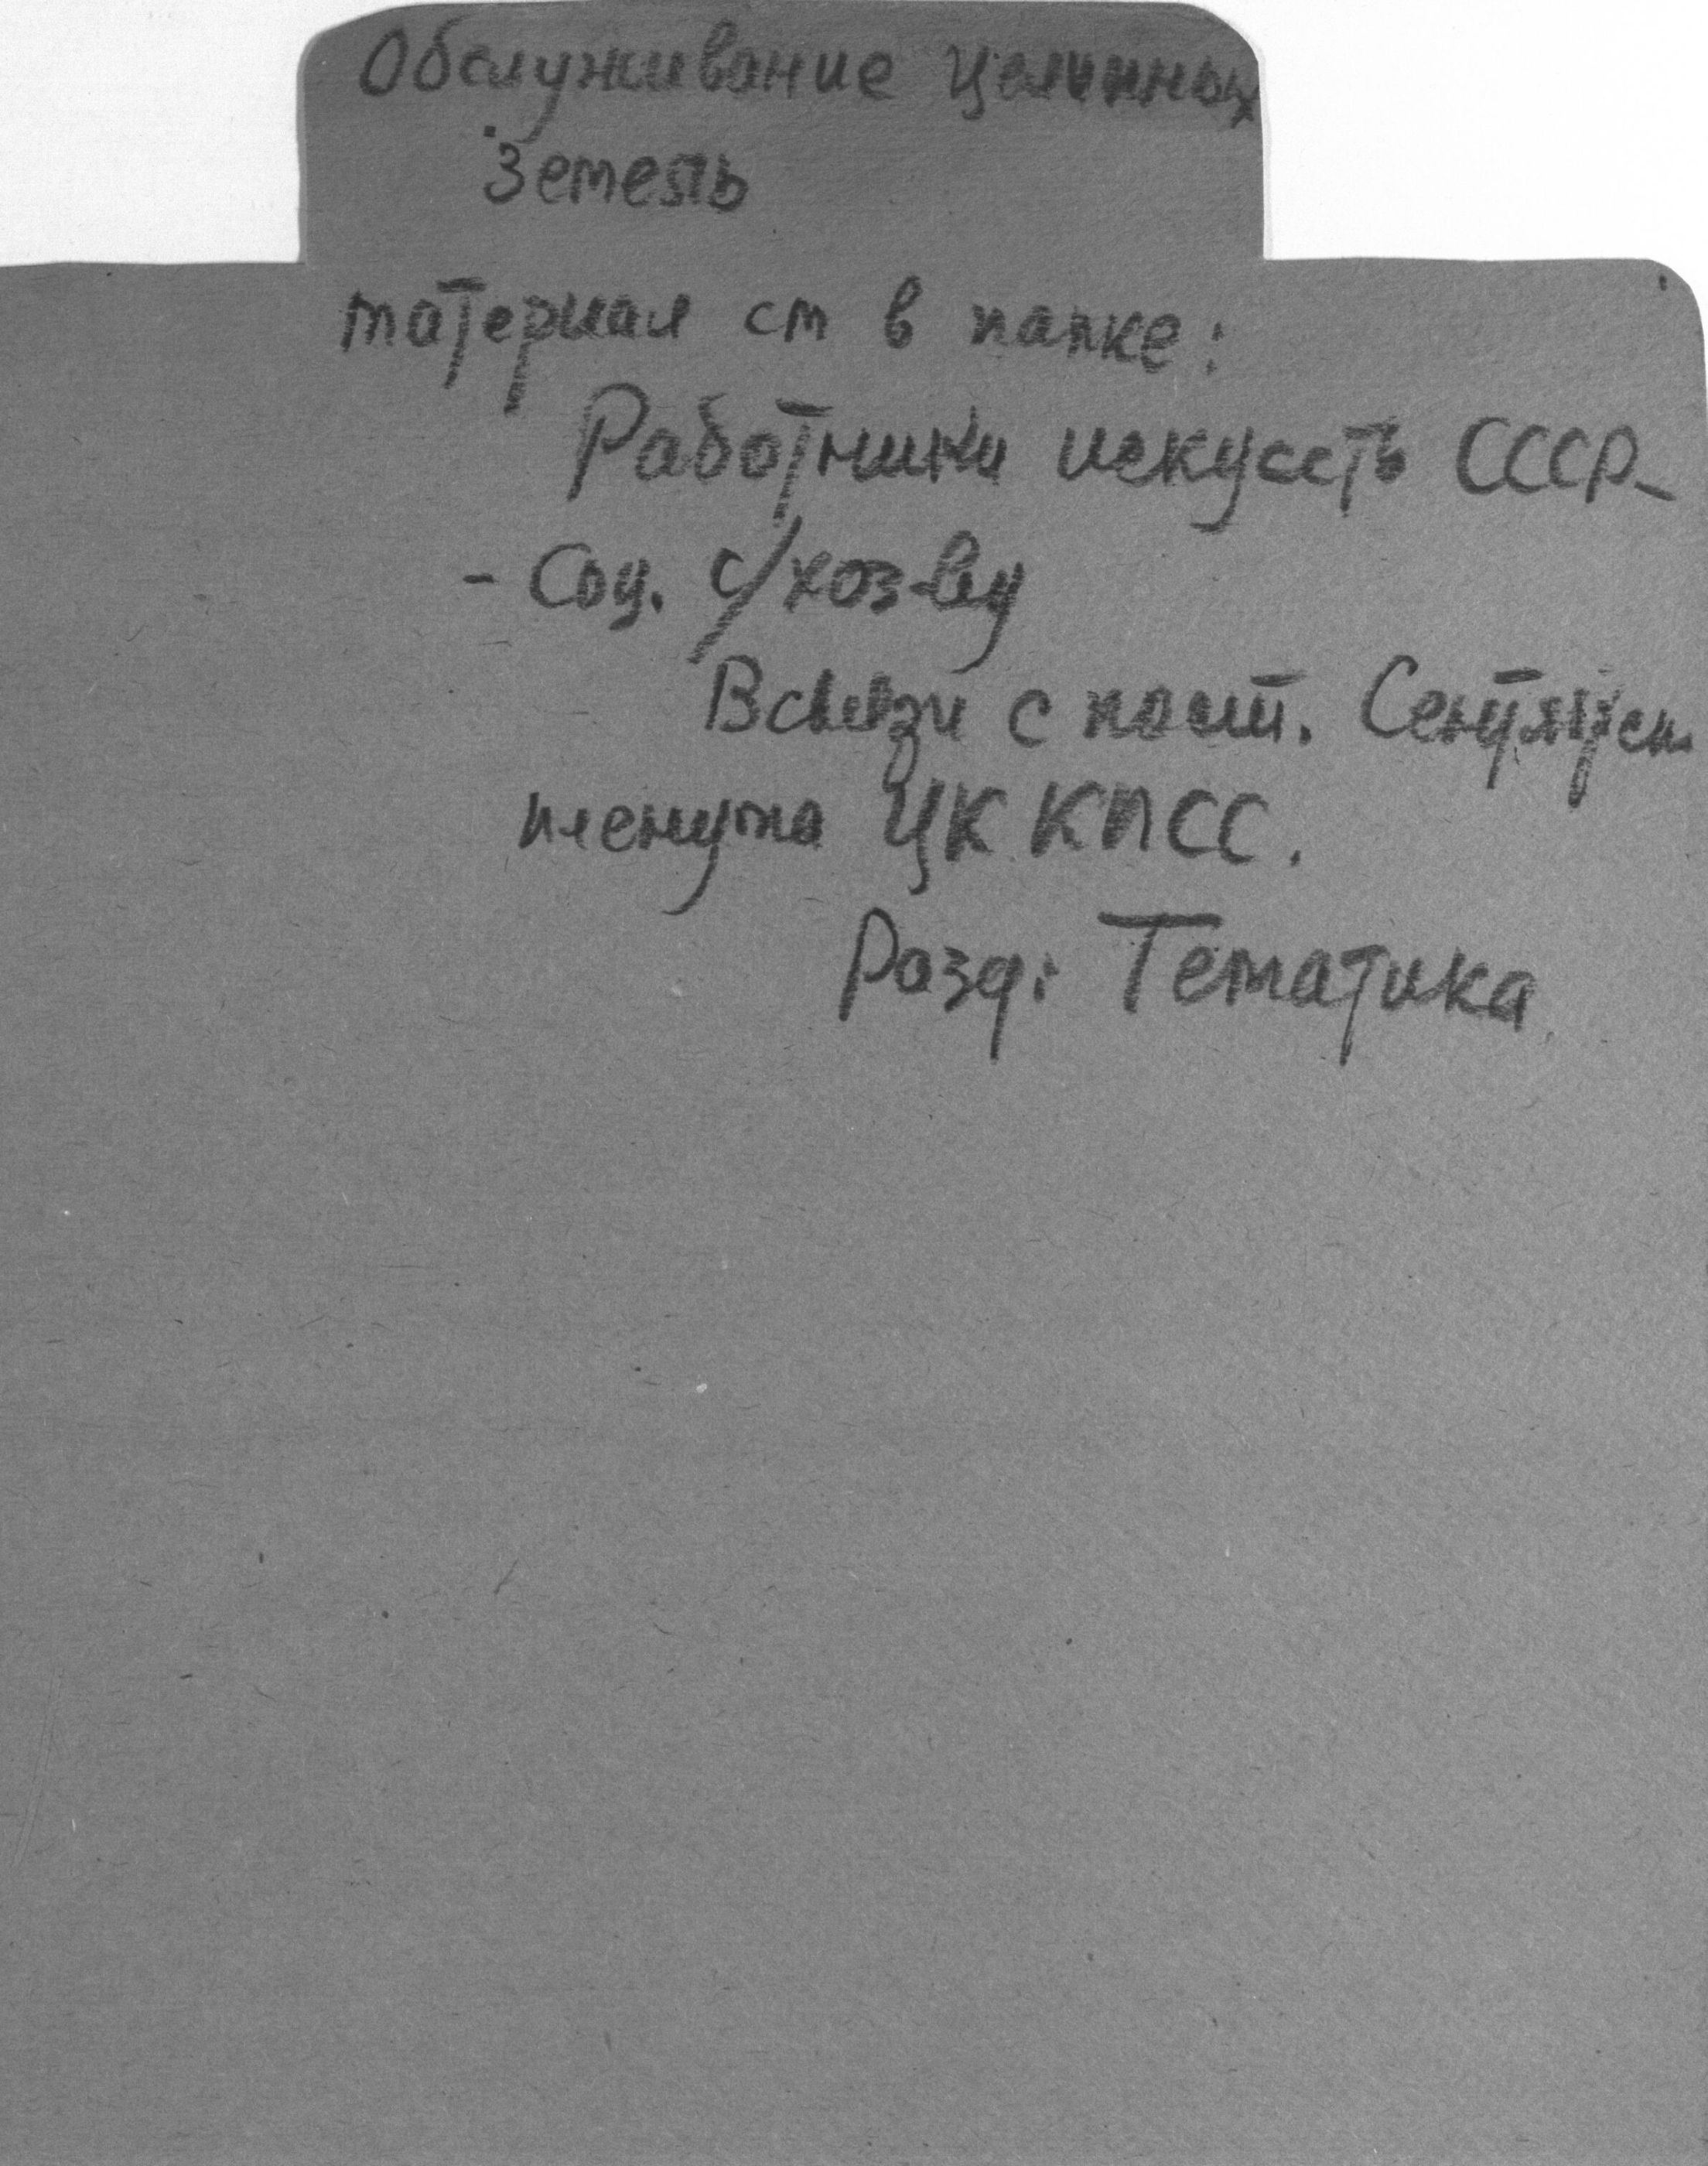 Обслуживание целинных
земель
материал см в папке:
Работники искусств СССР-
- Соц. с/хоз-ву
В связи с пост. Сентябрьск.
пленума ЦК КПСС.
Разд: Тематика